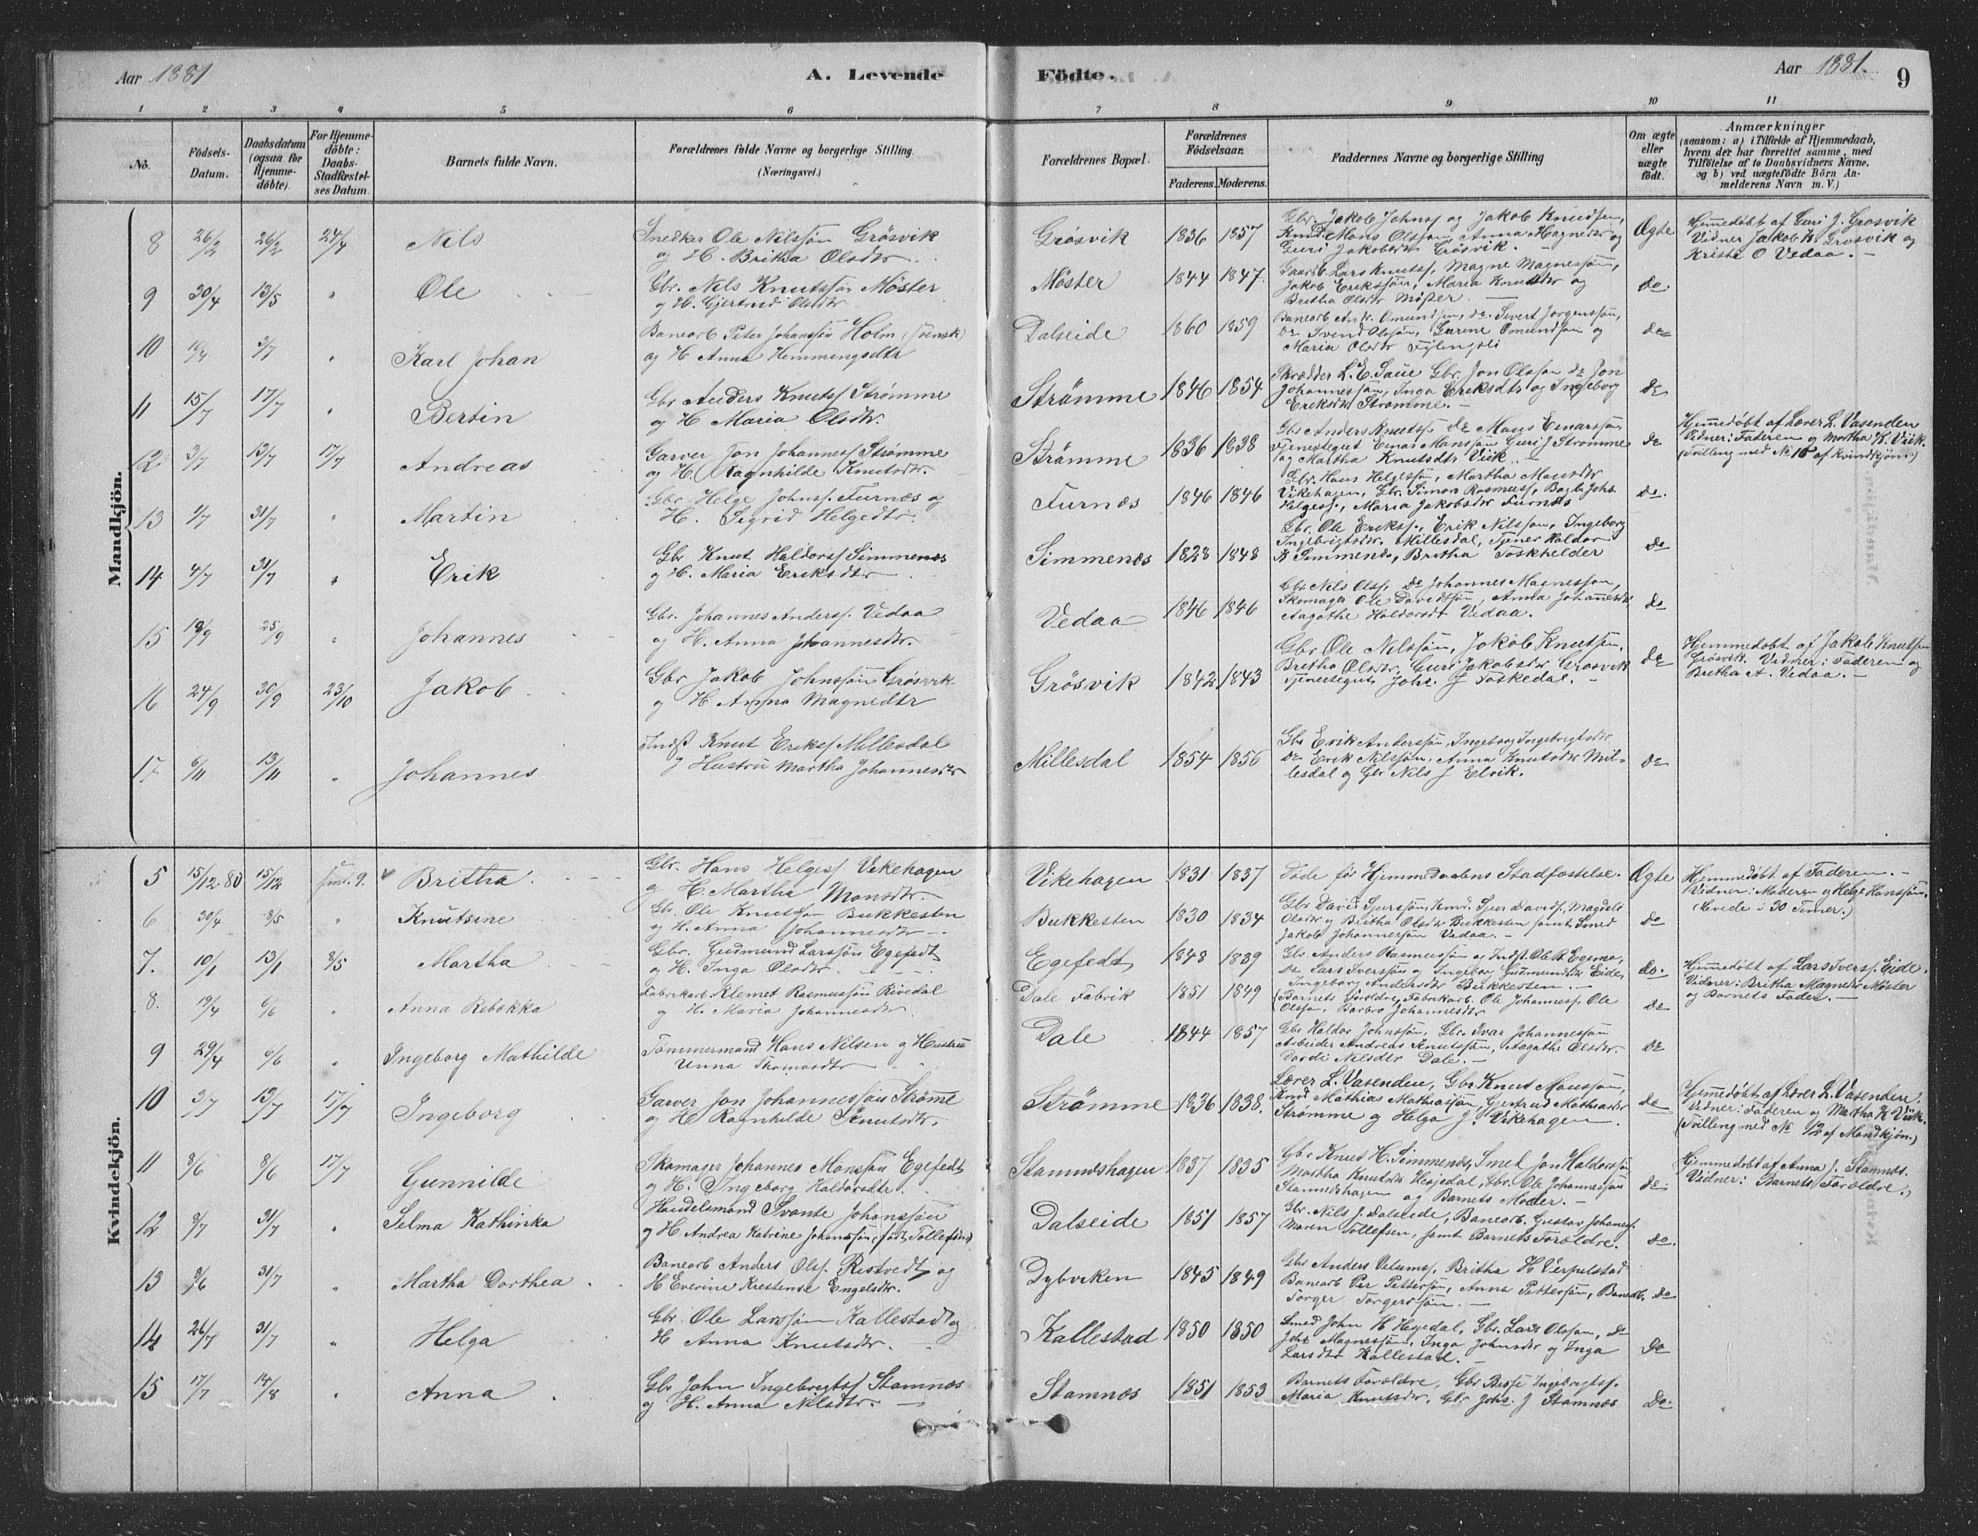 Aar 1881
A. Levende
Födte.
Aar 1881.
9
1 2 3 4 5 6 7 8 9 10 11
No.
Födsels-
Datum.
Daabsdatum
(ogsaa for
Hjemme-
döbte).
For Hjemme-
döbte:
Daabs-
Stadfæstel-
ses Datum.
Barnets fulde Navn.
Forældrenes fulde Navne og borgerlige Stilling
(Næringsvei.)
Forældrenes Bopæl.
Forældrenes
Födselsaar.
Faderens. Moderens.
Faddernes Navne og borgerlige Stilling
Om ægte
eller
uægte
födt.
Anmærkninger
(saasom: a) i Tilfælde af Hjemmedaab,
hvem der har forrettet samme, med
Tilföielse af to Daabsvidners Navne.
og b) ved uægtefödte Börn An-
melderens Navn m. V.)
Mandkjön.
8 26/2 26/2 24/4 Nils
Snedker Ole Nilssön Grösvik
og H. Britha Olsdtr.
Grösvik 1836 1857
Gbr. Jakob Johnss og Jakob Knudsen,
Knd Mons Olsson, Anna Magnedtr og
Guri Jakobsdtr Grösvik.
Ægte
Hjemmedöbt af Guri J. Grosvik
Vidner Jakob K. Grosvik og
Kristi O Vedaa. -
9 30/4 13/5 " Ole
Gbr. Nils Knutssön Möster
og H. Gjertrud Olsdtr
Möster 1844 1847.
Gaardb. Lars Knutss, Magne Magnessön,
Jakob Erikssön, Maria Knutsdtr og
Britha Olsdtr Möster
do.
10 " Karl Johan
Banearb Peter Johanssön Holm (svensk)
og H Anna Hemmingsdtr
Dalseide 1860 1859
Banearb Omundsen, do. Sivert Jörgenssön,
do Svend Olssön, Gurine Omundsen og
Maria Olsdtr Fylingsli
do
11 15/7 17/7 " Bertin
Gbr Anders Knutss Strömme
og H Maria Olsdtr.
Strömme 1846 1854
Skrædder L. E. Saue Gbr. Jon Olsson do Jon
Johannessön, Inga Eriksdtr og Ingeborg
Eriksdtr Strömme. -
do
12 3/7 13/7 17/7 Andreas
Garver Jon Johanness Strömme
og H. Ragnhilde Knutsdtr.
Strömme 1836 1838
Gbr Anders Knutss. do Mons Einarssön
Tjenestegut Einar Monssön Guri J Strömme
og Martha Knutsdtr Viik.
do
Hjemmedöbt af Lærer L. Vasenden
Vidner: Faderen og Martha K. Viik.
(Tvilling med No 10 af Kvindkjön.)
13 4/7 31/7 " Martin
Gbr Helge Johnss. Furnæs og
H. Sigrid Helgedtr.
Furnæs 1846 1846
Gbr. Hans Helgessön, Martha Monsdtr
Vikehagen, Gbr. Simon Rasmuss,
Helgess, Maria Jakobsdtr Furnæs
do.
14 4/7 31/7 " Erik
Gbr Knut Haldorss Simmenæs
og H. Maria Eriksdtr
Simmenæs 1828 1848
Gbr. Ole Erikss., Erik Nilssön, Ingeborg
Ingebrigtsdtr. Millesdal, Tjener Haldor
K Simmenæs, Britha
do
15 18/9 25/9 " Johannes
Gbr. Johannes Anderss. Vedaa
og H. Anna Johannesdtr.
Vedaa 1846 1846
Gbr Nils Olss, do Johannes Magnessön,
Skomager Ole Davidssön, Anna Johannesdtr
Aagathe Haldorsdtr Vedaa.
do
16 24/9 30/9 23/10 Jakob
Gbr Jakob Johnssön Grösvik
og H Anna Magnedtr
Grösvik 1842 1843
Gbr Ole Nilssön, Jakob Knutsen,
Bretha Olsdtr, Guri Jakobsdtr Grosvik
Tjenestegut Johs. J Toskedal. -
do
Hjemmedöbt af Jakob Knutsen
Grösvik. Vidner: Faderen og
Bretha A. Vedaa. -
17 6/11 13/11 " Johannes
Indst Knut Erikss Millesdal
Hustru Martha Johannesdtr
Millesdal 1854 1856
Gbr Erik Anderssön, Ingeborg Ingebrigtsdtr
do Erik Nilssön, Anna Knutsdtr Mil-
lesdal og Gbr Nils J Elvik.
do
Kvindekjön.
5 15/12 80 15/12 Britha.
Gbr. Hans Helgess Vikehagen
og H. Martha Monsdtr.
Vikehagen 1831 1837
Döde för Hjemmedaabens Stadfæstelse.
Ægte
Hjemmedöbt af Faderen. -
Vidner: Moderen og Helge Hanssön.
(Levede i 30 Timer.)
6 30/4 8/5 " Knutsine
Gbr. Ole Knutssön Bukkesten
og H. Anna Johannesdtr -.
Bukkesten 1830 1834
Gbr David Sjurssön, Knd. Sjur Davidss, Magdele
Olsdtr og Britha Olsdtr Bukkesten samt Smed
Jakob Johannessön Vedaa. -
do
7. 10/1 13/1 8/5 Martha
Gbr. Gudmund Larssön Egefedt
og H. Inga Olsdtr
Egefedt 1848 1839
Gbr Anders Rasmussön og Indst. Ole R. Egemo,
do Lars Iverssön og Ingebor Gudmundsdtr Eide,
Ingeborg Andersdtr Bukkesten. -
do.
Hjemmedöbt af Lars Iverss. Eide.
Vidner: Britha Magnedtr Möster
og Barnets Fader. -
8. 19/4 6/6 " Anna Rebekka
Fabrikarb Klemet Rasmussön Rivedal
og H. Maria Johannesdtr
Dale Fabrik 1851 1849
(Barnets Forældre, Fabrikarb. Ole Johanness, Ole
Olssön, Barbro Johannesdtr
do
9 29/4 6/6 " Ingeborg Mathilde
Tömmermand Hans Nilsen og Hustru
Unna Thomasdtr
Dale 1844 1857
Gbr Haldor Johnssön, Gbr. Ivar Johannessön
Arbeider Andreas Knutssön, Aagathe Olsdtr.
Dordi Nilsdtr Dale. -
do
10 3/7 13/7 17/7 Ingeborg
Garver Jon Johannessön Ströme
og H Ragnhilde Knutsdtr.
Strömme 1836 1838.
Lærer L. Vasenden, Gbr Knut Monssön,
Knd Mathias Mathiassön, Gertrud Mathiasdtr
Strömme og Helga J. Vikehagen.
do
Hjemmedöbt af Lærer L. Vasenden.
Vidner: Faderen og Martha K Viik.
(Tvilling med No 12 af Mandkjön.)
11 8/6 8/6 17/7 Gunnilde
Skomager Johannes Monssön Egefedt
og H. Ingeborg Haldorsdtr.
Stamneshagen 1837 1835
Gbr Knut H. Simmenæs, Smed Jon Haldorssön
Martha Knutsdtr Hesjedal, Gbr. Ole Johannessön
Stamneshagen og Barnets Moder. -
do.
Hjemmedöbt af Anna J. Stamnæs.
Vidner: Barnets Forældre.
12 8/7 31/7 " Selma Kathinka
Handelsmand Svante Johanssön
og H Andrea Katrine Johanssön (född Tollefsen)
Dalseide 1851 1857
Gbr. Nils J. Dalseide, Banearb. Gustav Johaness.
Maren Tollefsen, samt Barnets Forældre.
do.
13 31/7 " Martha Dorthea
Banearb Anders Olss. Ristvedt og
H Everine Krestense Engelsdtr.
Dybviken 1845 1849
Gbr Anders Velums, Britha H Verpelstad
Banearb Per Pettersön, Anna Pettersön, Banearb.
Torger Torgerssön. -
do
14 26/7 31/7 " Helga
Gbr. Ole Larssön Kallestad og
H Anna Knutsdtr.
Kallestad 1850 1850
Smed John H Hesjedal, Gbr. Lars Olsson, do
Johs Magnessön, Inga Johnsdtr og Inga
Larsdtr Kallestad. -
Do
15 17/7 14/8 " Anna
Gbr John Ingebregtss Stamnæs
og H. Anna Nilsdtr. -
Stamnæs 1851 1853
Barnets Forældre, Gbr Ingebregtss.
Maria Knutsdtr, Gbr Johs. J Stamnæs
Do.